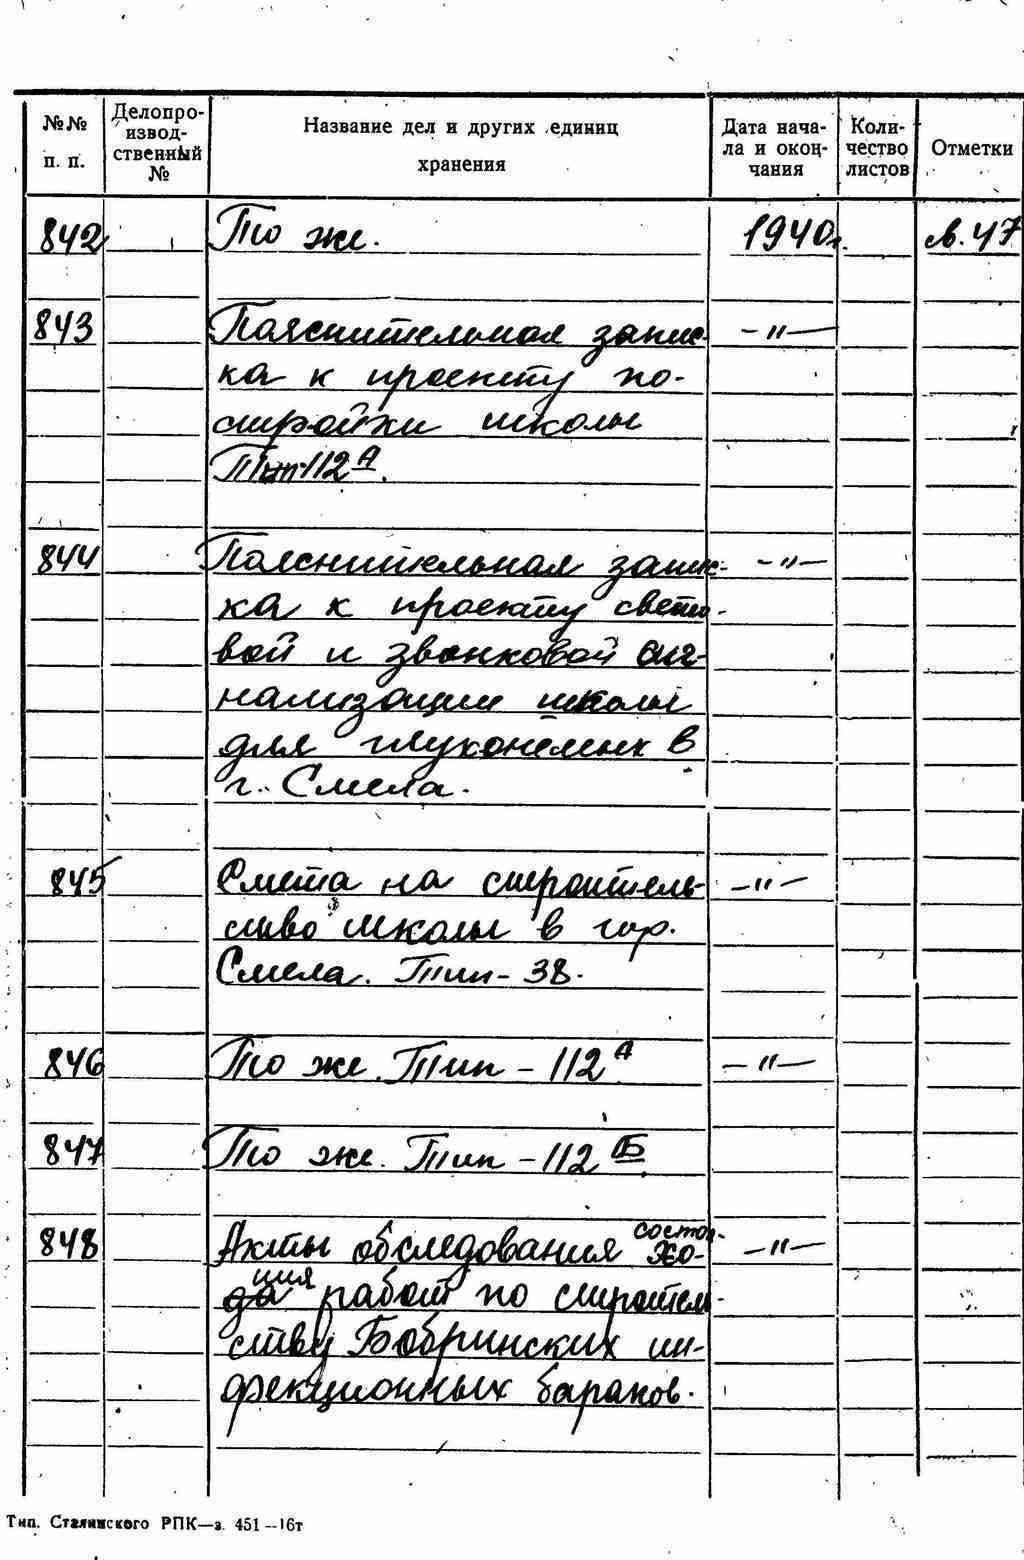 №№ п. п. Делопро-изводственный № Название дел и других единиц хранения Дата начала и окончания Количество листов Отметки
842 То же. 1940г. л. 47
843 Пояснительная запис- -"-
ка к проекту по-
стройки школы
Тип-112А.
844 Пояснительная запис- -"-
ка к проекту свето-
вой и звонковой сиг-
нализации школы
для глухонемых в
г. Смела.
845 Смета на строитель- -"-
ство школы в гор.
Смела. Тип-38.
846 То же. Тип-112А -"-
847 То же. Тип-112Б
848 Акты обследования состоя- -"-
ния работ по строитель-
ству Бобринских ин-
фекционных бараков.
Тип. Сталинского РПК—з. 451—16т